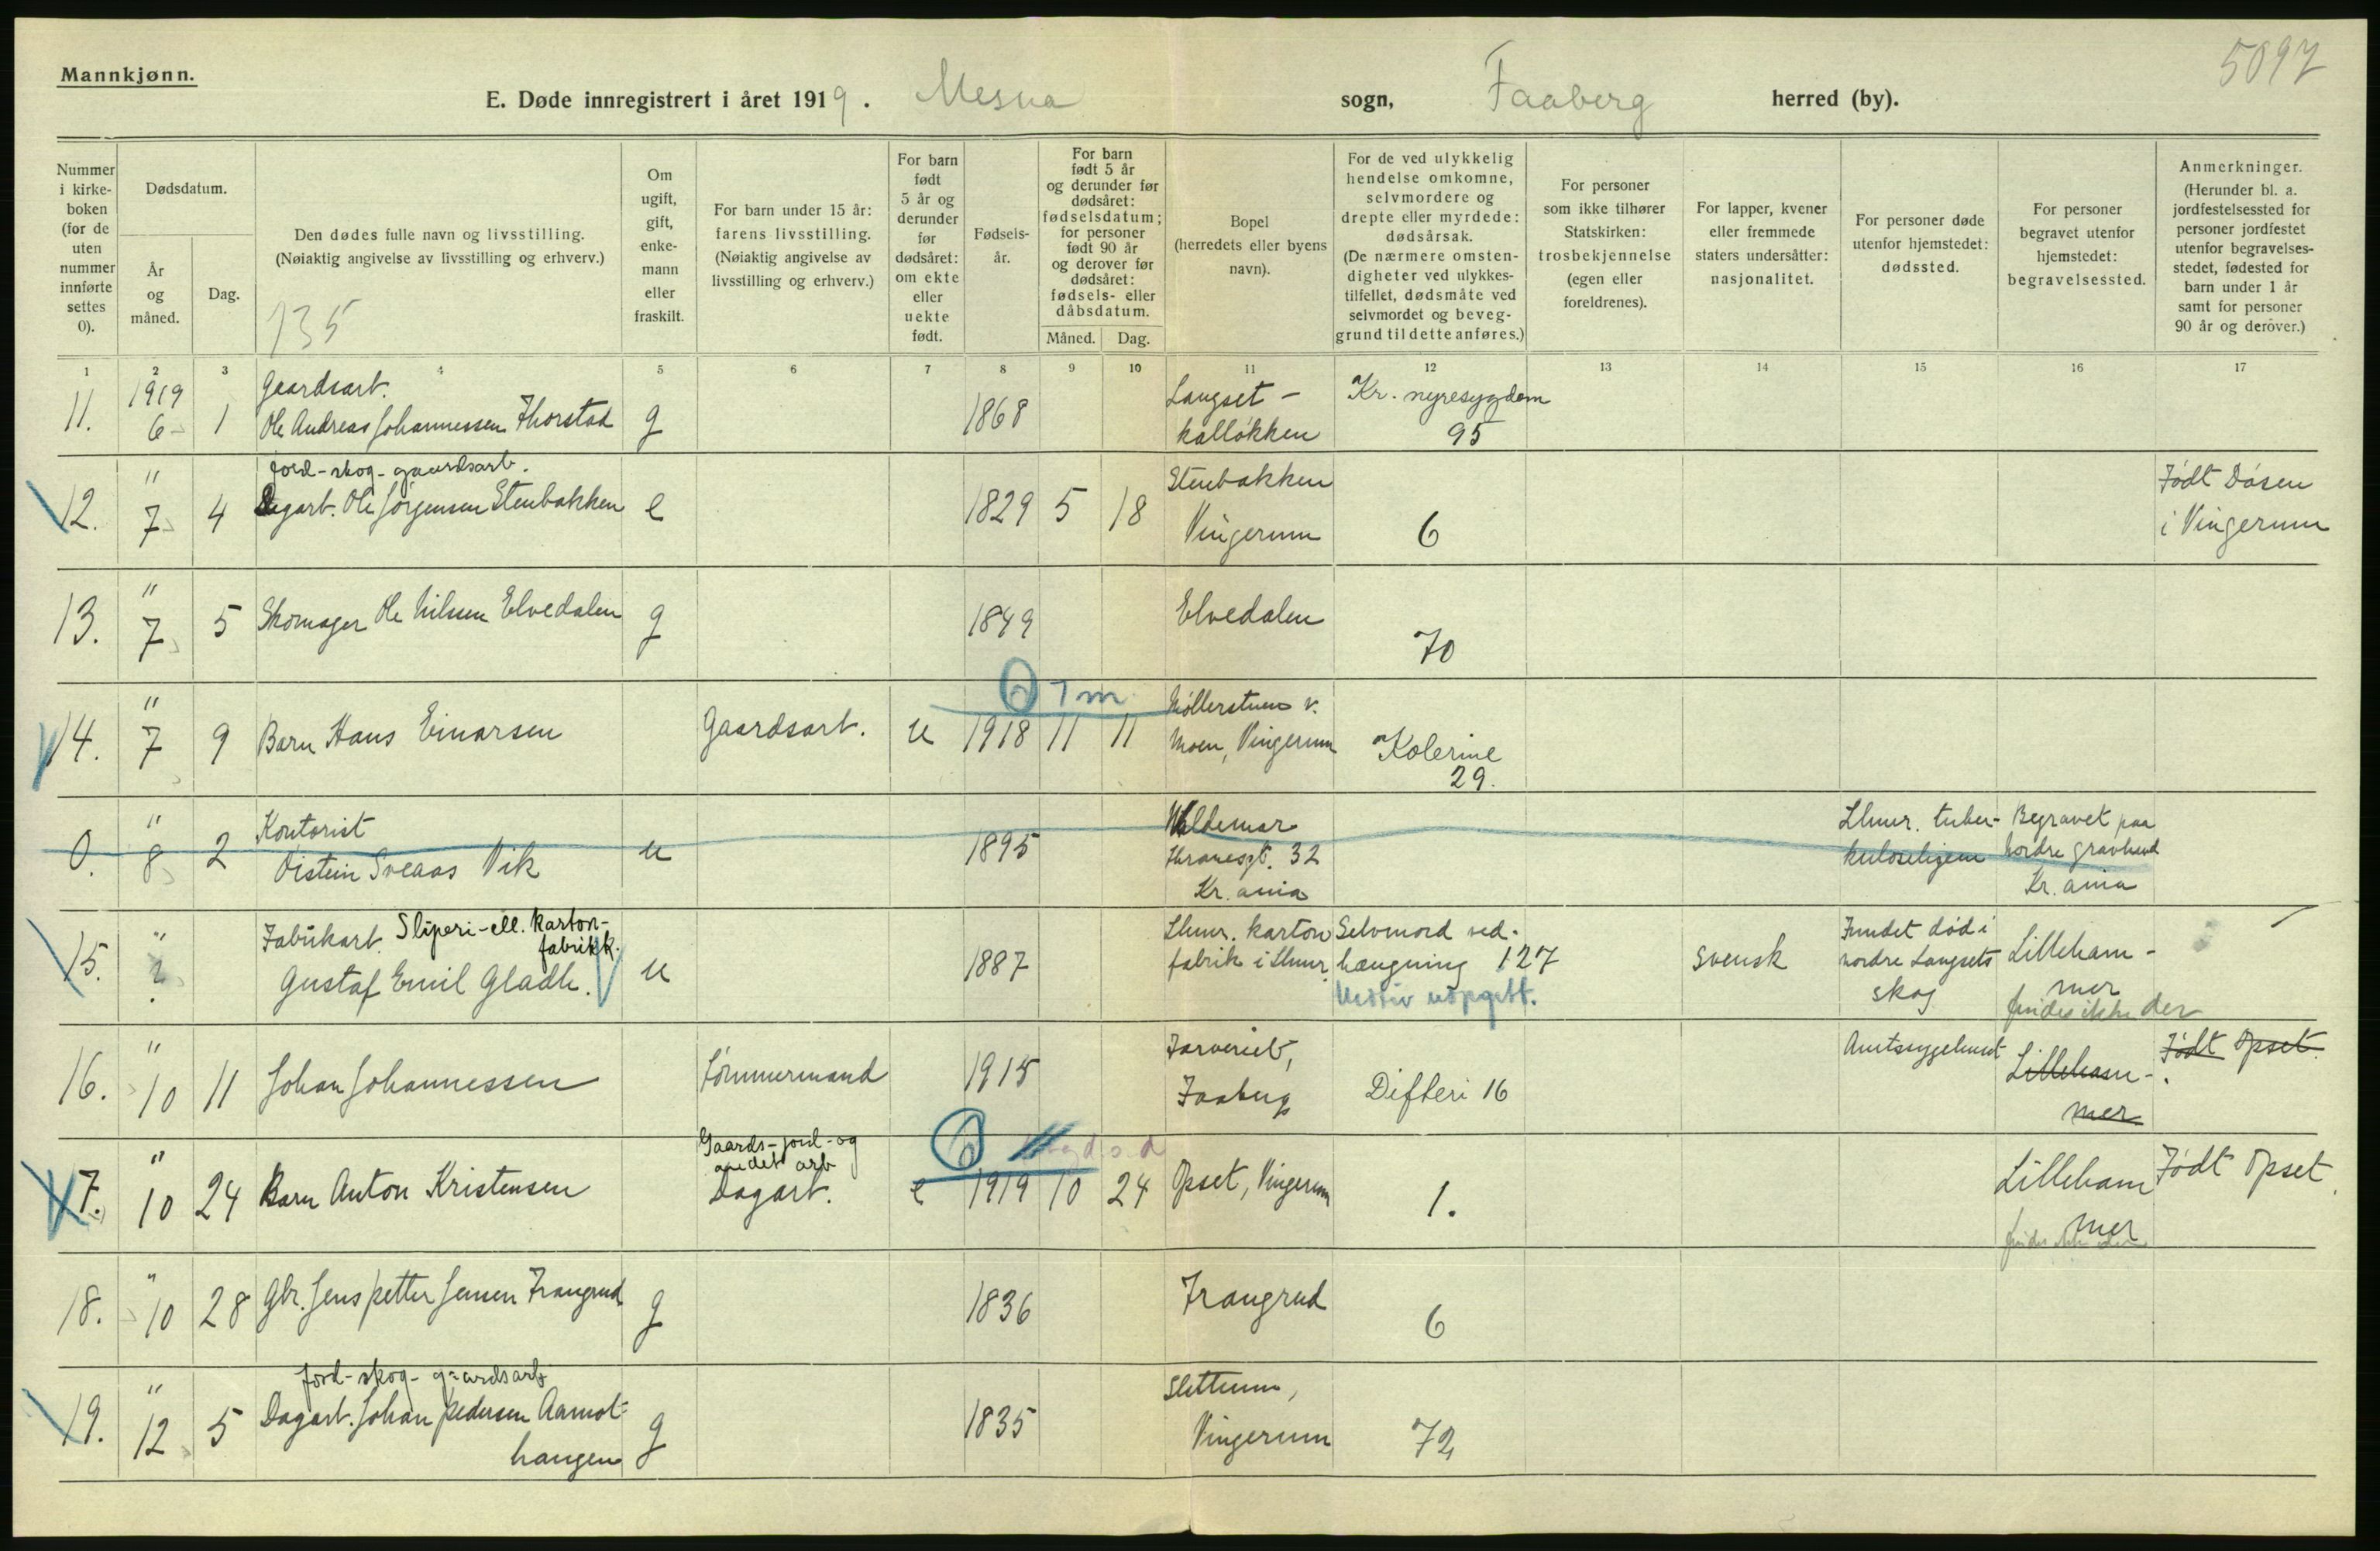 Mannkjønn.
5097
E. Døde innregistrert i året 1919. Mesna sogn, Faaberg herred (by).
Nummer i kirkeboken (for de uten nummer innførte settes 0).
Dødsdatum.
År og måned.
Dag.
Den dødes fulle navn og livsstilling.
(Nøiaktig angivelse av livsstilling og erhverv.)
135
Om ugift, gift, enkemann eller fraskilt.
For barn under 15 år: farens livsstilling.
(Nøiaktig angivelse av livsstilling og erhverv.)
For barn født 5 år og derunder før dødsåret: om ekte eller uekte født.
Fødselsår.
For barn født 5 år og derunder før dødsåret: fødselsdatum; for personer født 90 år og derover før dødsåret: fødsels- eller dåbsdatum.
Måned. Dag.
Bopel
(herredets eller byens navn).
For de ved ulykkelig hendelse omkomne, selvmordere og drepte eller myrdede: dødsårsak.
(De nærmere omstendigheter ved ulykkestilfellet, dødsmåte ved selvmordet og beveggrund til dette anføres.)
For personer som ikke tilhører Statskirken: trosbekjennelse (egen eller foreldrenes).
For lapper, kvener eller fremmede staters undersåtter: nasjonalitet.
For personer døde utenfor hjemstedet: dødssted.
For personer begravet utenfor hjemstedet: begravelsessted.
Anmerkninger.
(Herunder bl. a. jordfestelsessted for personer jordfestet utenfor begravelsesstedet, fødested for barn under 1 år samt for personer 90 år og derover.)
1 2 3 4 5 6 7 8 9 10 11 12 13 14 15 16 17
1919 Gaardsart. Langset- Kr. nyresygdom
11. 6 1 Ole Andreas Johannessen Thorstad g 1868 kalløkken 95
" Jord-skog-gaardsarb. Stenbakken Født Døsen
12. 7 4 Dagarb. Ole Jørgensen Stenbakken e 1829 5 18 Vingerum 6 i Vingerum
"
13. 7 5 Skomager Ole Nilsen Elvedalen g 1849 Elvedalen 70
" 7 m Møllerstuen v.
14. 7 9 Barn Hans Einarsen Gaardsarb. u 1918 11 11 Moen, Vingerum Kolerine
29.
" Kontorist Waldemar Lhmr. tuber- Begravet paa
0. 8 2 Øistein Sveaas Vik u 1895 Thranesgt. 32 kuloseligen Nordre gravlund
Kr.ania Kr.ania
" Fabrikarb. Sliperi-ell. karton-fabrikk. Lhmr. karton Selvmord ved Fundet død i
15. ? Gustaf Emil Gladh. u 1887 fabrik i Lhmr. hængning 127 svensk nordre Langsets Lilleham-
Motiv uopgitt. skog mer
findes ikke der
" Farveriet, Amtssygehuset Født Opset.
16. 10 11 Johan Johannessen Tømmermand 1915 Faaberg Difteri 16 Lilleham-
mer
" Gaards-jord-og andet arb
17. 10 24 Barn Anton Kristensen Dagarb. e 1919 10 24 Opset, Vingerum 1. Lilleham Født Opset
mer
findes ikke der
"
18. 10 28 Gbr. Jens Petter Jensen Frangrud g 1836 Frangrud 6
" Jord-skog-gaardsarb Slettum,
19. 12 5 Dagarb. Johan Pedersen Aamot- g 1835 Vingerum 72
haugen